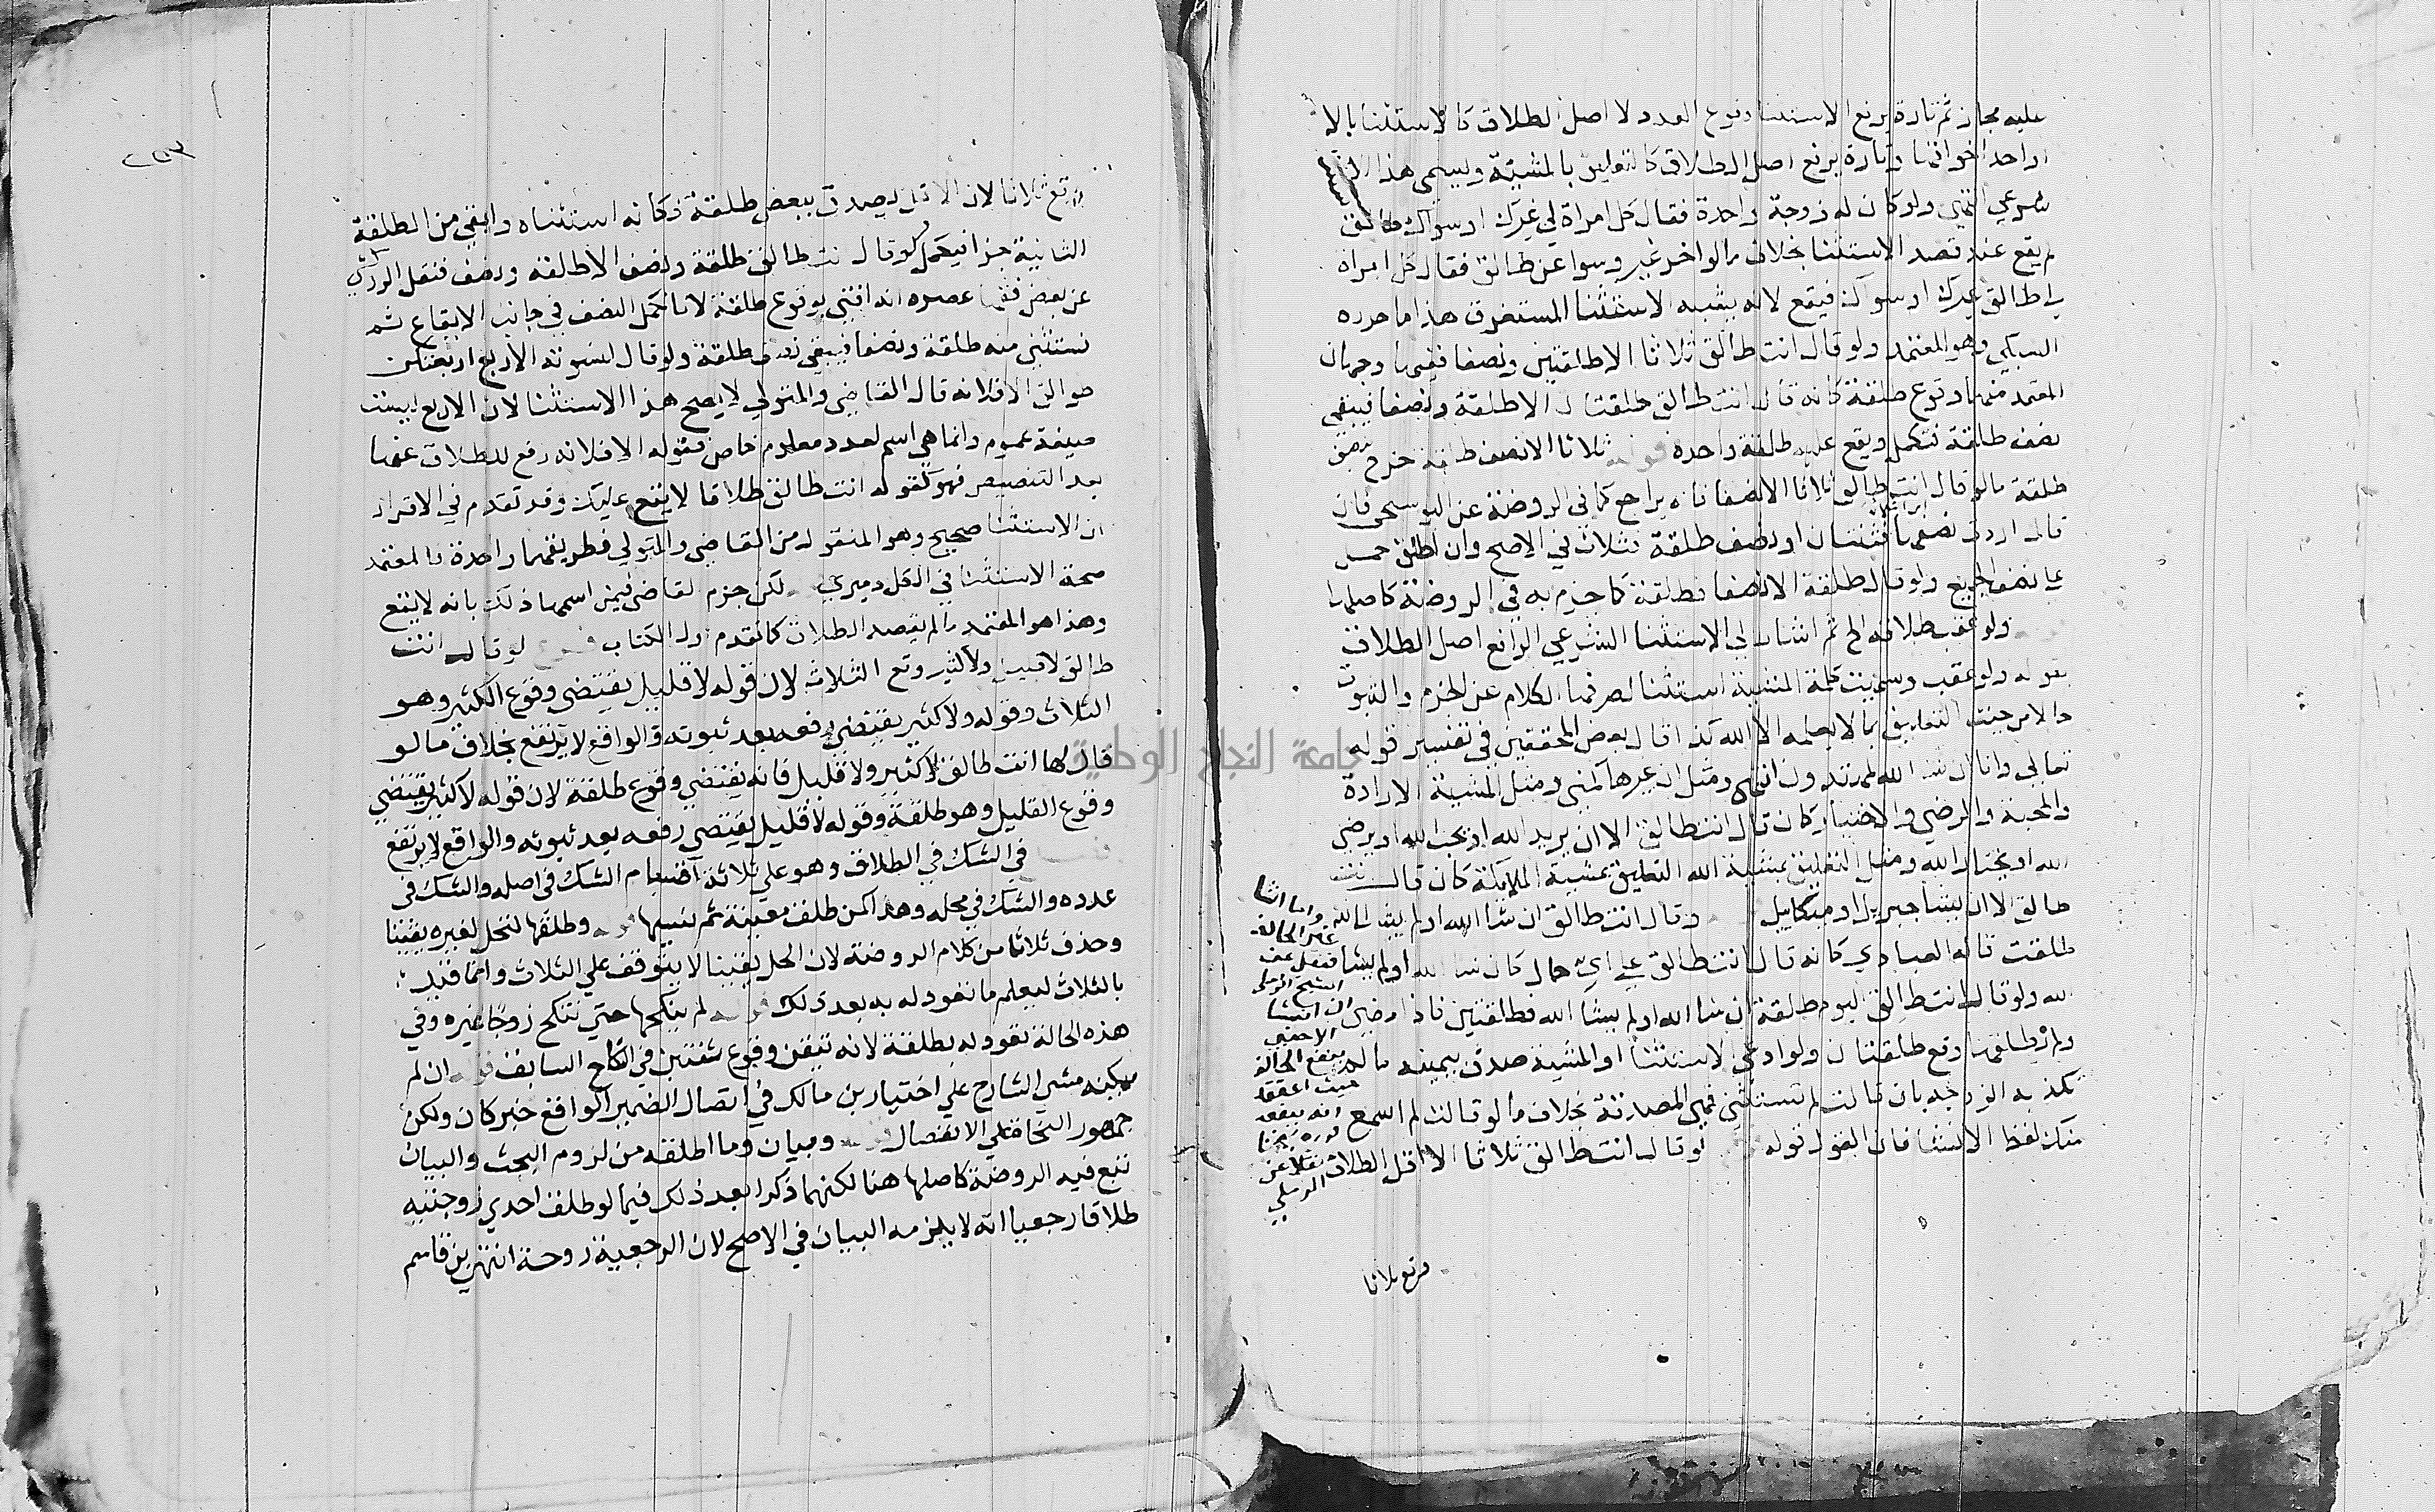 عليه مجاز ثم تارة يرفع الاستثنا وقوع العدد لا اصل الطلاق كالاستثنا بالا
او احد اخواتها وتارة يرفع اصل الطلاق كالتعليق بالمشيئة ويسمي هذا
شرعي انتهي ولو كان له زوجة واحدة فقال كل امراة لي غيرك او سواك طالق
لم يقع عند قصد الاستثنا بخلاف ما لو اخر غير وسوا عن طالق فقال كل امراة
لي طالق غيرك او سواك فيقع لانه يشبه الاستثنا المستغرق هذا ما حرره
السبكي وهو المعتمد ولو قال انت طالق ثلاثا الا طلقتين ونصفا ففيها وجهان
المعتمد منهما وقوع طلقة كانه قال انت طالق طلقتان الا طلقة ونصفا فيبقي
نصف طلقة فتكمل ويقع عليه طلقة واحدة قوله ثلاثا الا نصف طلقة خرج
طلقة ما لو قال انت طالق ثلاثا الا نصفا فانه يراجع كما في الروضة عن البوسنجي فان
قال اردت نصفها فثنتان او نصف طلقة فثلاث في الاصح وان اطلق حمل
علي نصف الجميع ولو قال طلقة الا نصفا فطلقة كما جزم به في الروضة كاصلها
ولو عقب طلاقه الخ ثم اشار الي الاستثنا الشرعي الرافع اصل الطلاق
بقوله ولو عقب وسميت كلمة المشيئة استثنا لصرفها الكلام عن الجزم والثبوت
حالا من حيث التعليق بما لا يعلمه الا الله كذا قال بعض المحققين في تفسير قوله
تعالي وانا ان شا الله لمهتدون انتهي ومثل ان غيرها كمتي ومثل المشيئة الارادة
والمحبة والرضي والاختيار كان قال انت طالق الا ان يريد الله او يحب الله او يرضي
الله او يختار الله ومثل التعليق بمشيئة الله التعليق بمشيئة الملايكة كان قال انت
طالق الا ان يشا جبريل او ميكاييل وقال انت طالق ان شا الله او لم يشا الله
طلقت قاله العبادي كانه قال انت طالق علي اي حال كان شا الله او لم يشا
الله ولو قال انت طالق اليوم طلقة ان شا الله او لم يشا الله فطلقتين فاذا مضي
ولم يطلقها وقع طلقتان ولو ادعي الاستثنا او المشيئة صدق بيمينه ما لم
تكذبه الزوجة بان قالت لم تستثني فهي المصدقة بخلاف ما لو قالت لم اسمع
منك لفظ الاستثنا فان القول قوله لو قال انت طالق ثلاثا الا اقل الطلاق
واما انشا
غير الحالف
فنقل عن
الشيخ الرملي
ان انشا
الاجنبي
ينفع الحالف
حيث اعتقد
انه ينفعه
قرره شيخنا
نقلا عن
الرملي
وقع ثلاثا
٢٥٣
وقع ثلاثا لان الاقل يصدق ببعض طلقة فكانه استثناه وابقي من الطلقة
الثانية جزا فيكمل لو قال انت طالق طلقة ونصف الا طلقة ونصف فنقل الوردي
عن بعض فقها عصره انه افتي بوقوع طلقة لانا نكمل النصف في جانب الايقاع ثم
نستثني منه طلقة ونصفا فيبقي نصف طلقة ولو قال لنسوته الاربع اربعتكن
طوالق الا فلانه قال القاضي والمتولي لا يصح هذا الاستثنا لان الاربع ليست
صيغة عموم وانما هي اسم لعدد معلوم خاص فقوله الا فلانه رفع للطلاق عنها
بعد التنصيص فهو كقوله انت طالق طلاقا لا يقع عليك وقد تقدم في الاقرار
ان الاستثنا صحيح وهو المنقول من القاضي والمتولي فطريقهما واحدة فالمعتمد
صحة الاستثنا في الكل دميري لكن جزم القاضي فيمن اسمها ذلك بانه لا يقع
وهذا هو المعتمد ما لم يقصد الطلاق كما تقدم اول الكتاب فروع لو قال انت
طالق لا قليل ولا كثير وقع الثلاث لان قوله لا قليل يقتضي وقوع الكثير وهو
الثلاث وقوله ولا كثير يقتضي رفعه بعد ثبوته والواقع لا يرتفع بخلاف ما لو
قال لها انت طالق لا كثير ولا قليل فانه يقتضي وقوع طلقة لان قوله لا كثير يقتضي
وقوع القليل وهو طلقة وقوله لا قليل يقتضي رفعه بعد ثبوته والواقع لا يرتفع
في الشك في الطلاق وهو علي ثلاثة اقسام الشك في اصله والشك في
عدده والشك في محله وهذا كمن طلق معينة ثم نسيها قوله وطلقها لتحل لغيره يقينا
وحذف ثلاثا من كلام الروضة لان الحل يقينا لا يتوقف علي الثلاث وانما قيد
بالثلاث ليعلم ما تعود له به بعد ذلك قوله لم ينكحها حتي تنكح زوجا غيره وفي
هذه الحالة تعود له بطلقة لانه تيقن وقوع ثنتين في النكاح السابق قوله ان لم
يمكنه مشي الشارح علي اختيار بن مالك في اتصال الضمير الواقع خبر كان ولكن
جمهور النحاة علي الانفصال قوله وبيان وما اطلقه من لزوم البحث والبيان
تبع فيه الروضة كاصلها هنا لكنهما ذكرا بعد ذلك فيما لو طلق احدي زوجتيه
طلاقا رجعيا انه لا يلزمه البيان في الاصح لان الرجعية زوجة انتهي بن قاسم
جامعة النجاح الوطنية